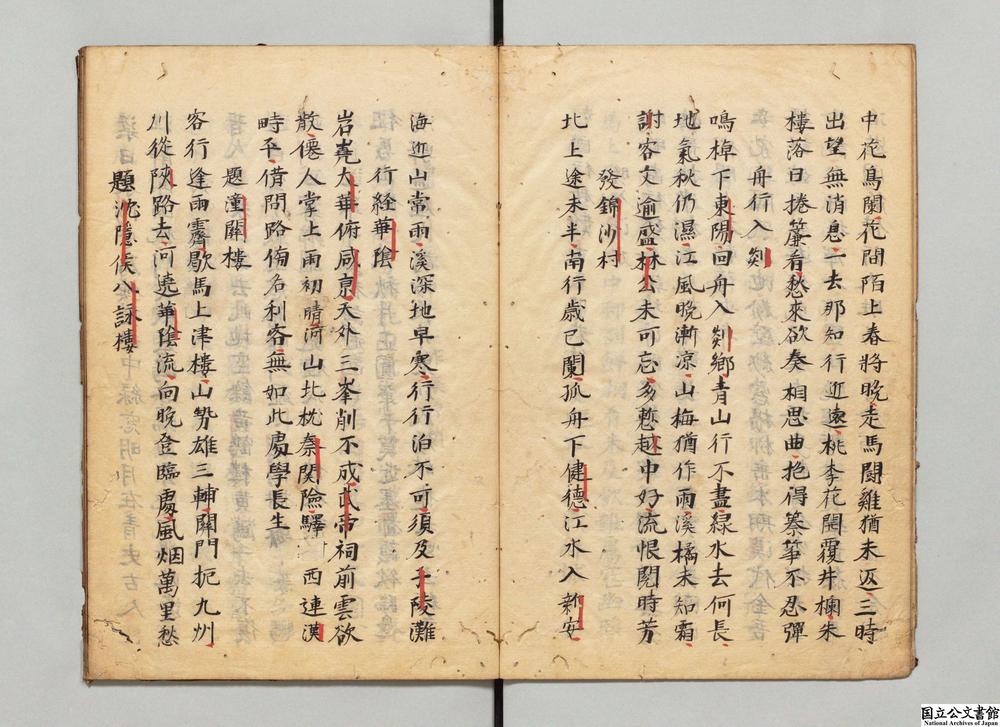 中花鳥蘭花間陌上春將晩走馬闘雞猶未返三時
出望無消息一去那知行近遠桃李花開覆井欄朱
樓落日捲簾看愁來欲奏相思曲抱得箏不忍彈
舟行入剡
鳴棹下東陽回舟入剡鄉青山行不盡綠水去何長
地氣秋仍濕江風晩漸凉山梅猶作雨溪橘未知霜
謝客文逾盛林公未可忘多慙越中好流恨閱時芳
發錦沙村
北上途未半南行歲已闌孤舟下健德江水入新安
海近山常雨溪深地早寒行行泊不可須及子陵灘
行經華陰
岩嶢太華俯咸京天外三峯削不成武帝祠前雲欲
散僊人掌上雨初晴河山北枕秦関險驛西連漢
時平借問路傍名利客無如此處學長生
題潼關樓
客行逢雨霽歇馬上津樓山勢雄三輔關門扼九州
川從陝路去河遶華陰流向晩登臨處風烟萬里愁
題沈隱侯八詠樓
国立公文書館
National Archives of Japan